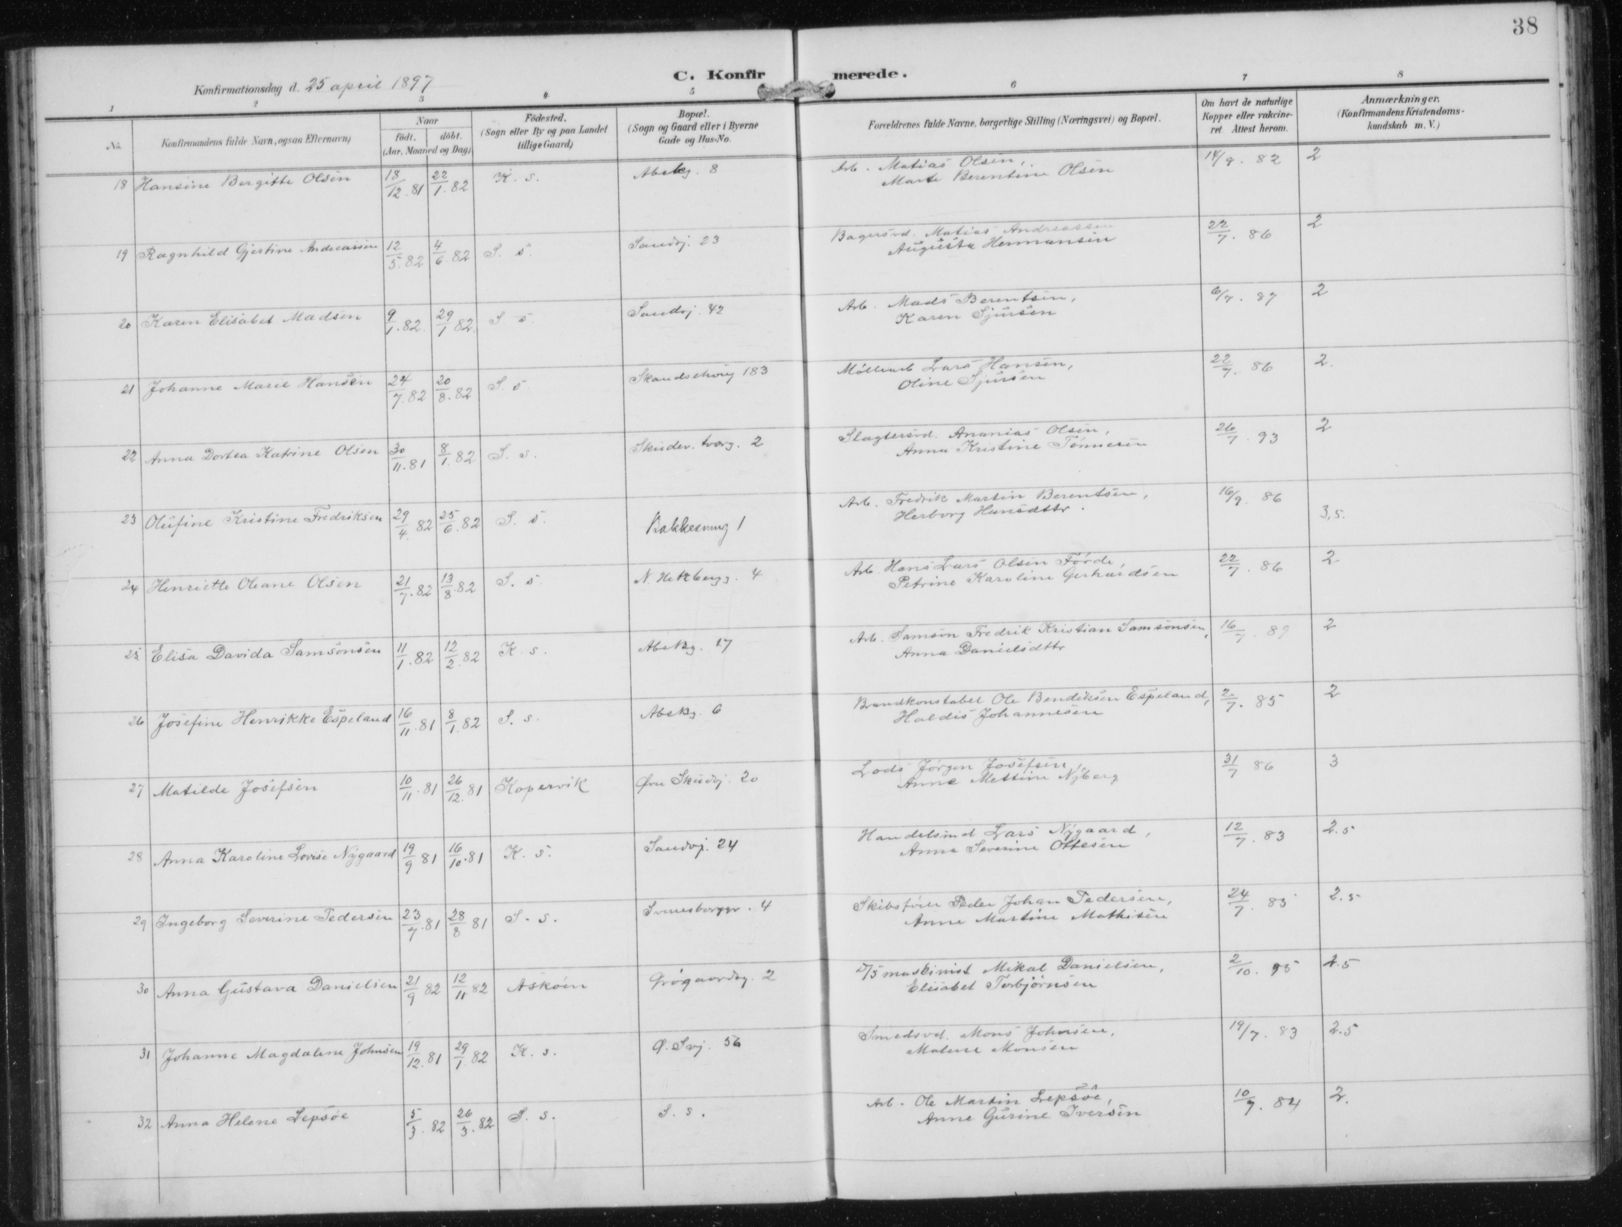 38
C. Konfirmerede.
Konfirmationsdag d. 25 april 1897
1 2 3 4 5 6 7 8
No. Konfirmandens fulde Navn, ogsaa Efternavn) Naar født. døbt. (Aar, Maaned og Dag) Fødested. (Sogn eller By og paa Landet tillige Gaard) Bopæl. (Sogn og Gaard eller i Byerne Gade og Hus-No. Forældrenes fulde Navne, borgerlige Stilling (Næringsvei) og Bopæl. Om havt de naturlige Kopper eller vakcineret. Attest herom. Anmærkninger. (Konfirmandens Kristendomskundskab m. V.)
18 Hansine Bergitte Olsen 18/12.81 22/1.82 K. s. 8 Arb. Matias Olsen, 14/9. 82 2
Marte Berentine Olsen
19 Ragnhild Gjertine Andreassen 12/5.82 4/6.82 S. s. Sandvj. 23 Bagersvd. Matias Andreassen 22/7. 86 2
Augusta Hermansen
20 Karen Elisabet Madsen 9/1.82. 29/1.82. S s. Sandvj. 42 Arb. Mads Berentsen, 6/7. 87 2
Karen Sjursen
21 Johanne Marie Hansen 24/7.82 20/8.82 S s. 183 Møllearb Lars Hansen, 22/7. 86 2.
Oline Sjursen
22 Anna Dortea Katrine Olsen 30/11.81 8/1.82 S. s. Skudev. tverg. 2 Slagtersvd. Ananias Olsen, 26/7. 93 2
Anna Kristine Tønnesen
23 Olufine Kristine Fredriksen 29/4.82 25/6.82 S. s. Bakkesmug 1 Arb. Fredrik Martin Berentsen, 16/9. 86 3,5.
Herborg Hansdttr.
24 Henriette Oleane Olsen 21/7.82 13/8.82 S. s N. 4 Arb. Hans Lars Olsen Førde, 22/7. 86 2
Petrine Karoline Gerhardsen
25 Elisa Davida Samsonsen 11/1.82 12/2.82 K. s. 17 Arb. Samson Fredrik Kristian Samsonsen, 16/7. 89 2
Anna Danielsdttr
26 Josefine Henrikke Espeland 16/11.81 8/1.82 S. s. 6 Brandkonstabel Ole Bendiksen Espeland, 2/7. 85 2
Haldis Johannesen
27 Matilde Josefsen 10/11.81 26/12.81 Kopervik Øvre Skudvj. 20 Lods Jørgen Josefsen, 31/7 86 3
Anne Mettine Nyberg
28 Anna Karoline Lovise Nygaard 19/9 81 16/10.81 K. s. Sandvj. 24 Handelsmd Lars Nygaard, 12/7. 83 2.5
Anne Severine Ottesen
29 Ingeborg Severine Pedersen 23/7.81 28/8 81 S. s. 4 Skibsfører Peder Johan Pedersen, 24/7. 85 2.5
Anne Martine Mathisen
30 Anna Gustava Danielsen 21/9 82 12/11 82 Askøen Grøgaardsg. 2 D/S maskinist Mikal Danielsen, 2/10. 95 2.5
Elisabet Torbjørnsen
31 Johanne Magdalene Johnsen 19/12.81 29/1.82 K. s. Ø. Svj. 56 Smedsvd. Mons Johnsen, 19/7. 83 2.5
Malene Monsen
32 Anna Helene Lepsøe 5/3.82 26/3.82 S. s. S. s. Arb. Ole Martin Lepsøe, 10/9. 84 2.
Anne Gurine Iversen